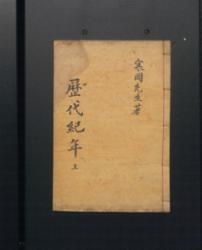 寒岡先生著
歷代紀年 上